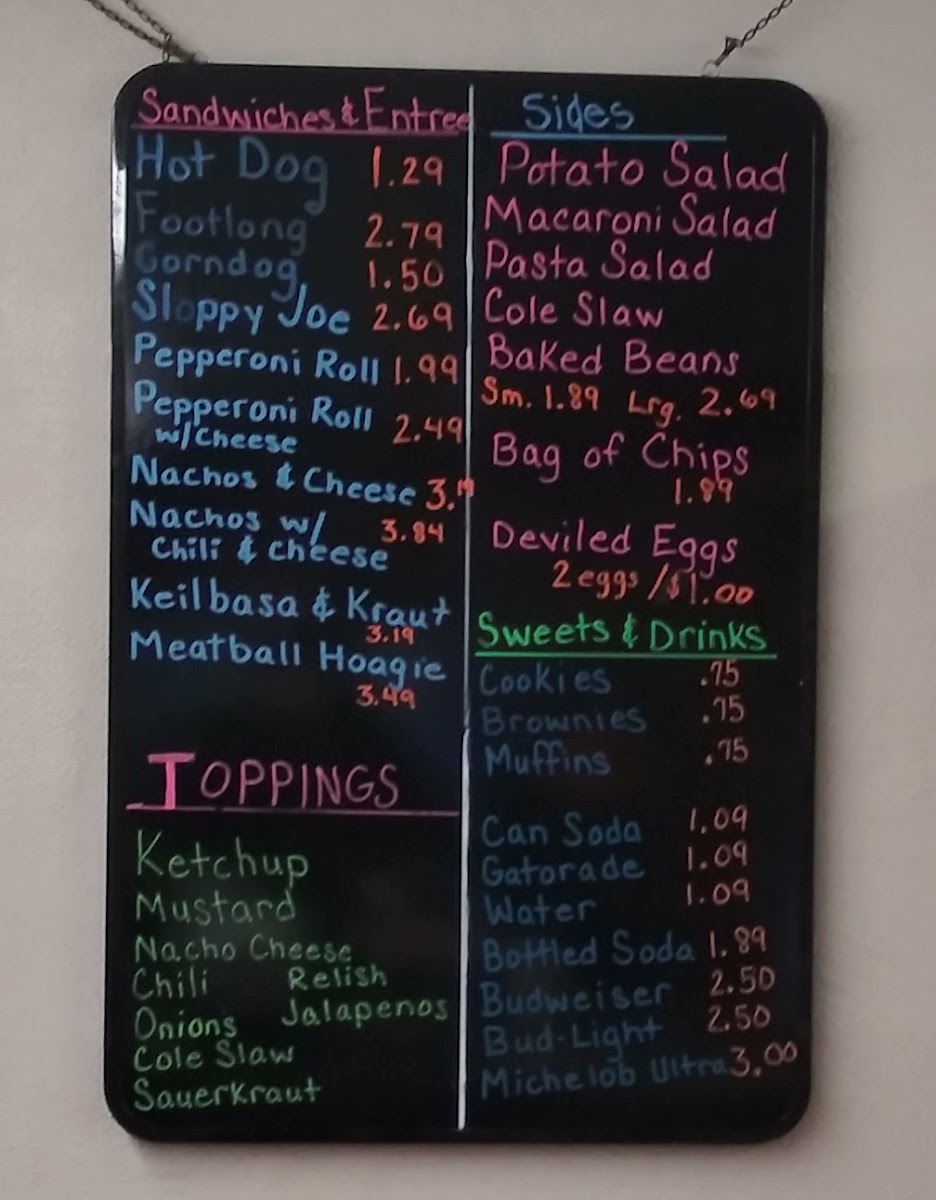 Sandwiches & Entree
Hot Dog 1.29
Footlong 2.79
Corndog 1.50
Sloppy Joe 2.69
Pepperoni Roll 1.99
Pepperoni Roll
w/Cheese 2.49
Nachos & Cheese 3.19
Nachos w/ 3.84
Chili & cheese
Keilbasa & Kraut
3.19
Meatball Hoagie
3.49
TOPPINGS
Ketchup
Mustard
Nacho Cheese
Chili Relish
Onions Jalapenos
Cole Slaw
Sauerkraut
Sides
Potato Salad
Macaroni Salad
Pasta Salad
Cole Slaw
Baked Beans
Sm. 1.89 Lrg. 2.69
Bag of Chips
1.89
Deviled Eggs
2 eggs /$1.00
Sweets & Drinks
Cookies .75
Brownies .75
Muffins .75
Can Soda 1.09
Gatorade 1.09
Water 1.09
Bottled Soda 1.89
Budweiser 2.50
Bud-Light 2.50
Michelob Ultra 3.00